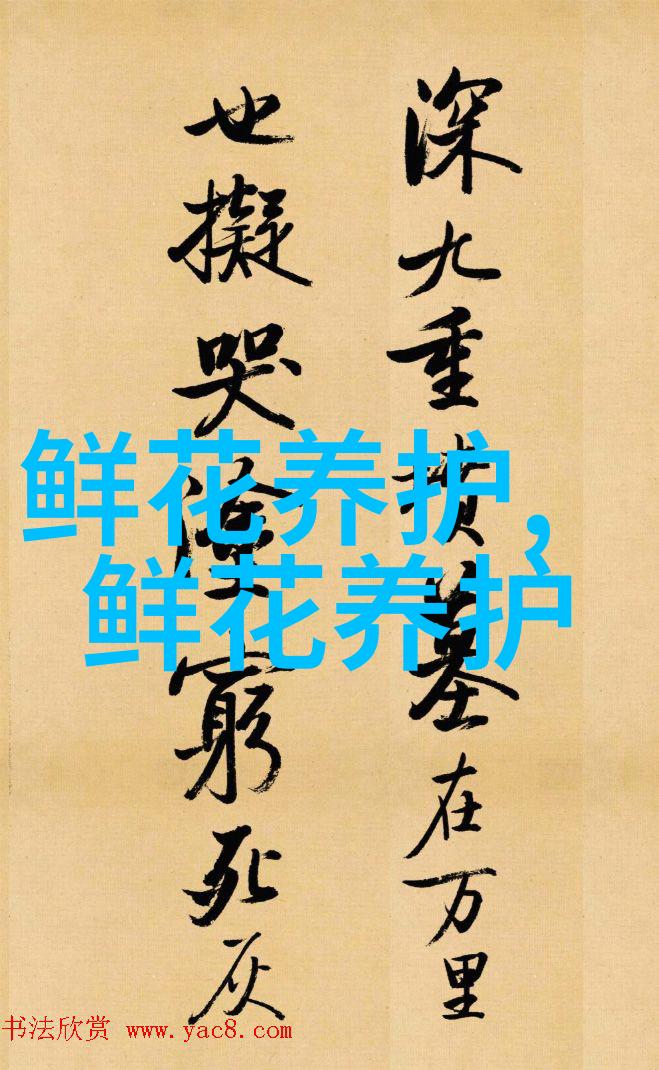 深九重坟墓在万里
也擬哭塗窮死灰
鲜花养护,
鲜花养护
书法欣赏 www.yac8.com